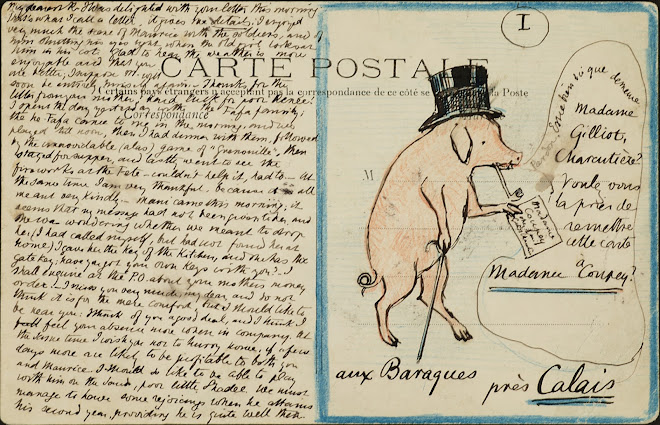 My dear K. I was delighted with your letter this morning
that's what I call a letter, it gives me details, I enjoyed
very much the scene of Maurice with the soldiers, and of
him shutting his eyes tight when the old girl looks at
him in his cot. Glad to hear the weather is more
enjoyable and that you
are better, I suppose you will
soon be entirely yourself again. Thanks for the
before
I spent the day yesterday with the family;
the came to me in the morning, and we
played till noon, then I had dinner with them, followed
by the unavoidable (alas) game of "Grenouille", then
I stayed for supper, and lastly went to see the
fireworks at the Fête — couldn't help it, had to — At
the same time I am very thankful, because it is all
meant very kindly — mani came this morning, it
seems that my message had not been given to her, and
she was wondering whether we meant to drop
her, (I had called myself, but had not found her at
home) I gave her the key of the kitchen, and she has the
gate key; have you got your own keys with you? I
shall enquire at the P.O. about your mother's money
order — I miss you very much, my dear, and do not
think it is for the mere comfort, but I should like to
be near you: think of you a good deal, and I think I
feel your absence more when in company. At
the same time I wish you not to hurry home, if a few
days more are likely to be profitable to both you
and Maurice. I should so like to be able to play
with him on the sands, poor little Shadee. We must
manage to have some rejoicings when he attains
his second year, providing he is quite well then
1
CARTE POSTALE
Certains pays étrangers n'acceptent pas la correspondance de ce côté se à la Poste
Correspondance
M
Madame
Coupey
aux Baraques
près Calais
que demeure
Madame
Gilliot,
Charcutière?
Voulez vous
la près de
remettre
cette carte
à
Madame Coupey?